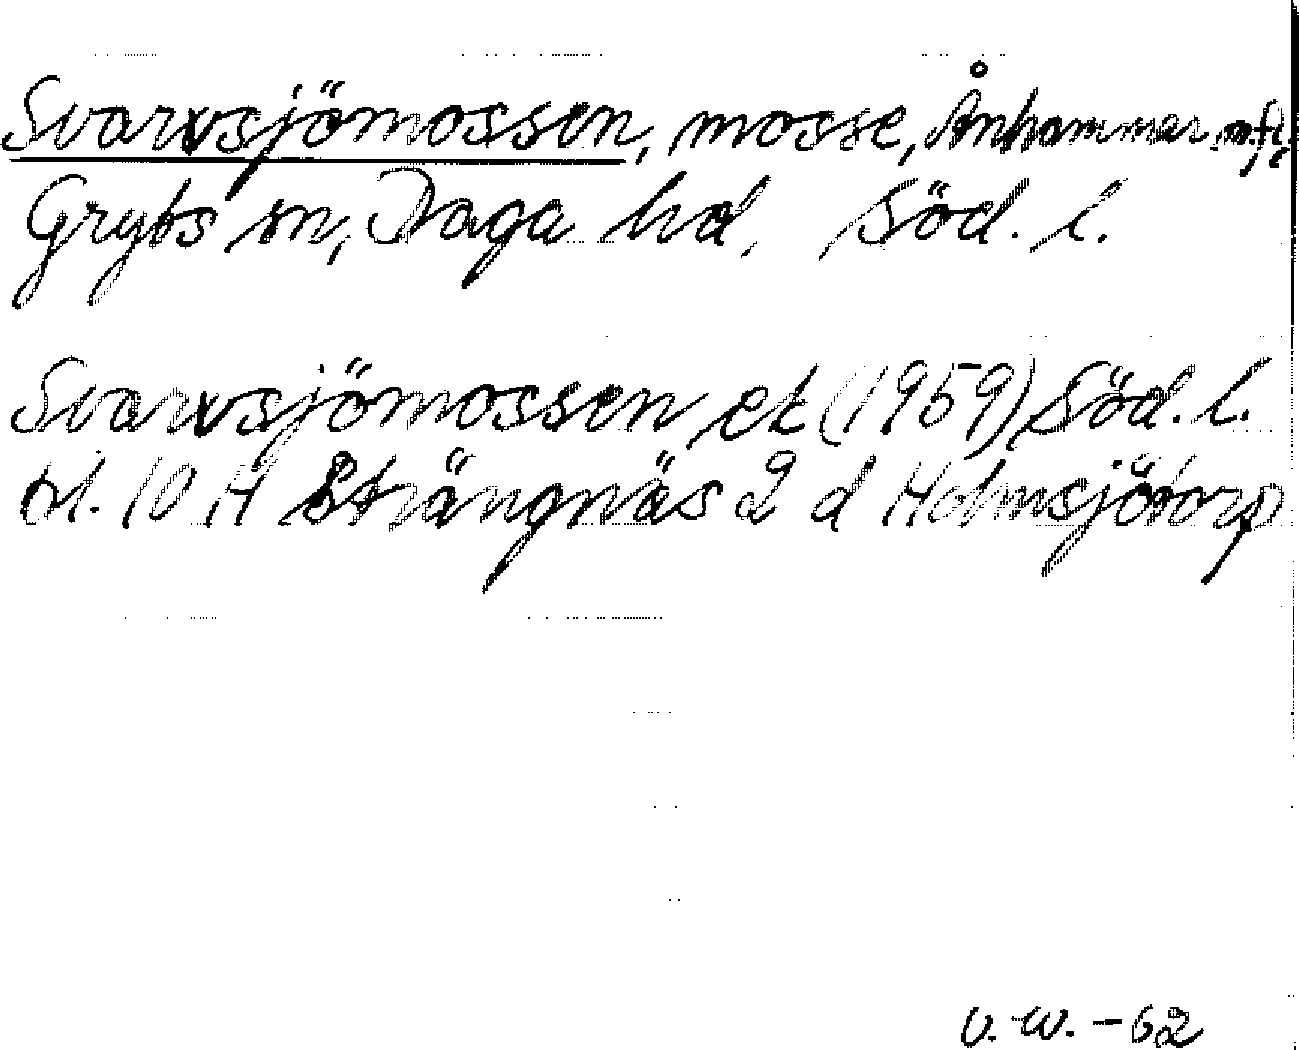 Svarvsjömossen, mosse, Ånhammar
Gryts sn, Daga hd, Söd. l.
Svarvsjömossen ek (1959) Söd. l.
bl. 10 H Strängnäs 2 d Holmsjötorp
V. W. - 62